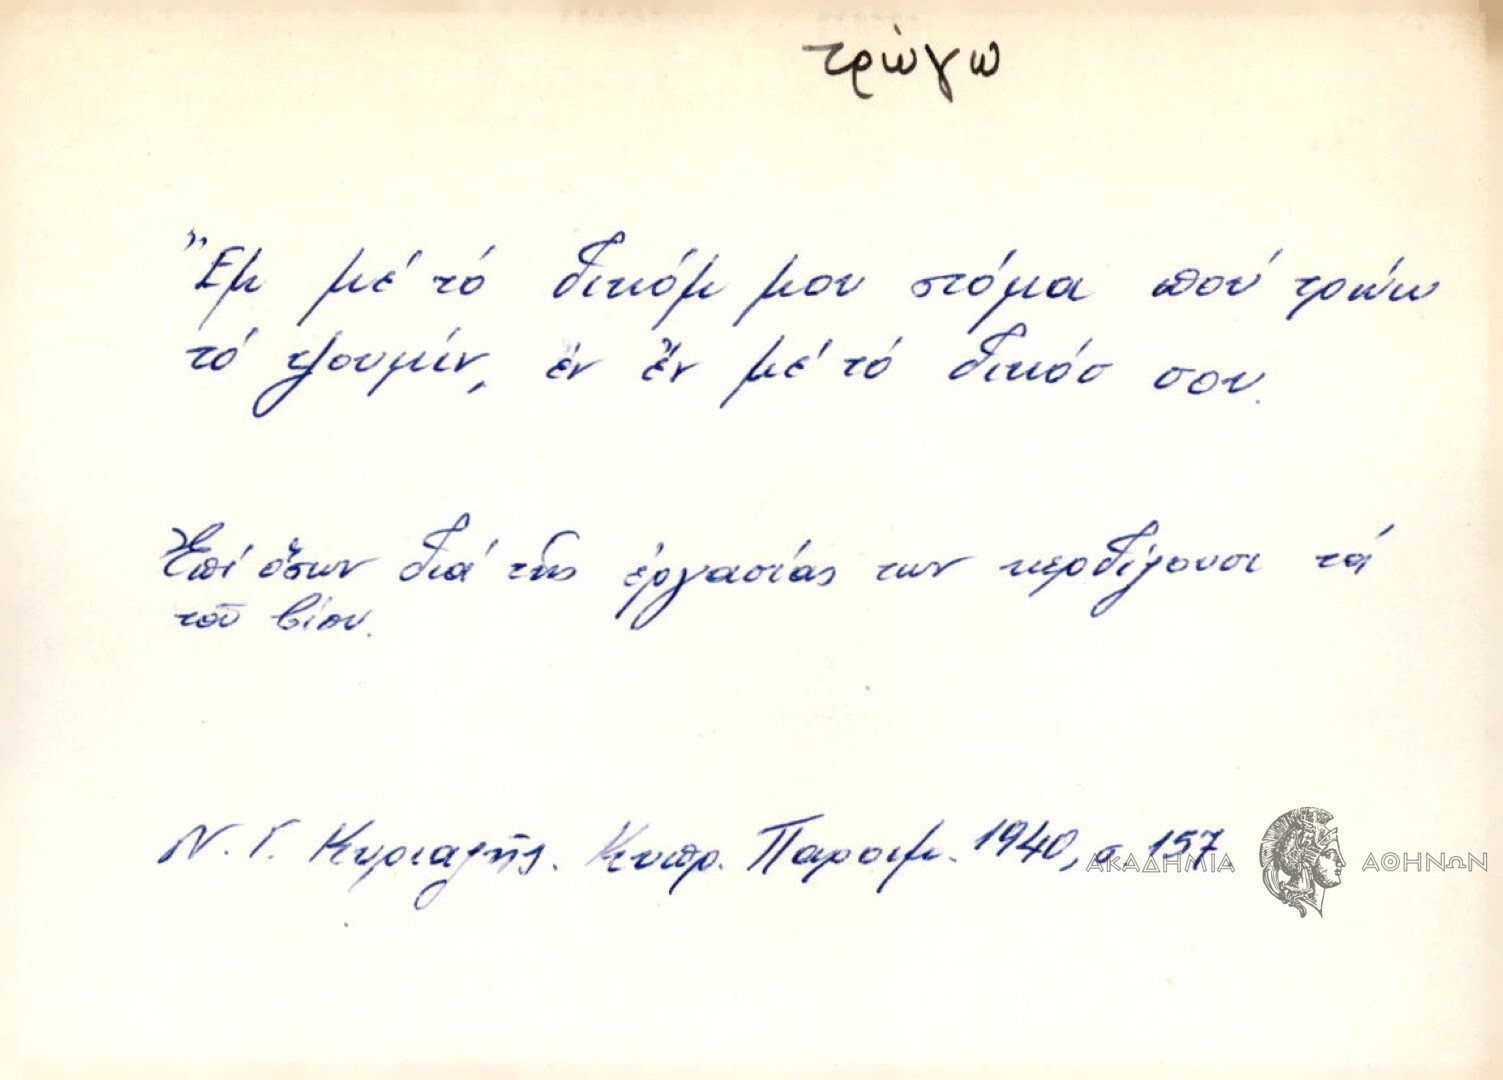 τρώγω
Ἔμ μέ τό δικόμ μου στόμα πού τρώω
τό ψουμίν, ἐν ἔν μέ τό δικόσ σου.
Ἐπί ὅσων διά τῆς ἐργασίας των κερδίζουσι τά
τοῦ βίου.
Ν. Γ. Κυριαζῆς. Κυπρ. Παροιμ. 1940, σ. 157
ΑΚΑΔΗΜΙΑ ΑΘΗΝΩΝ